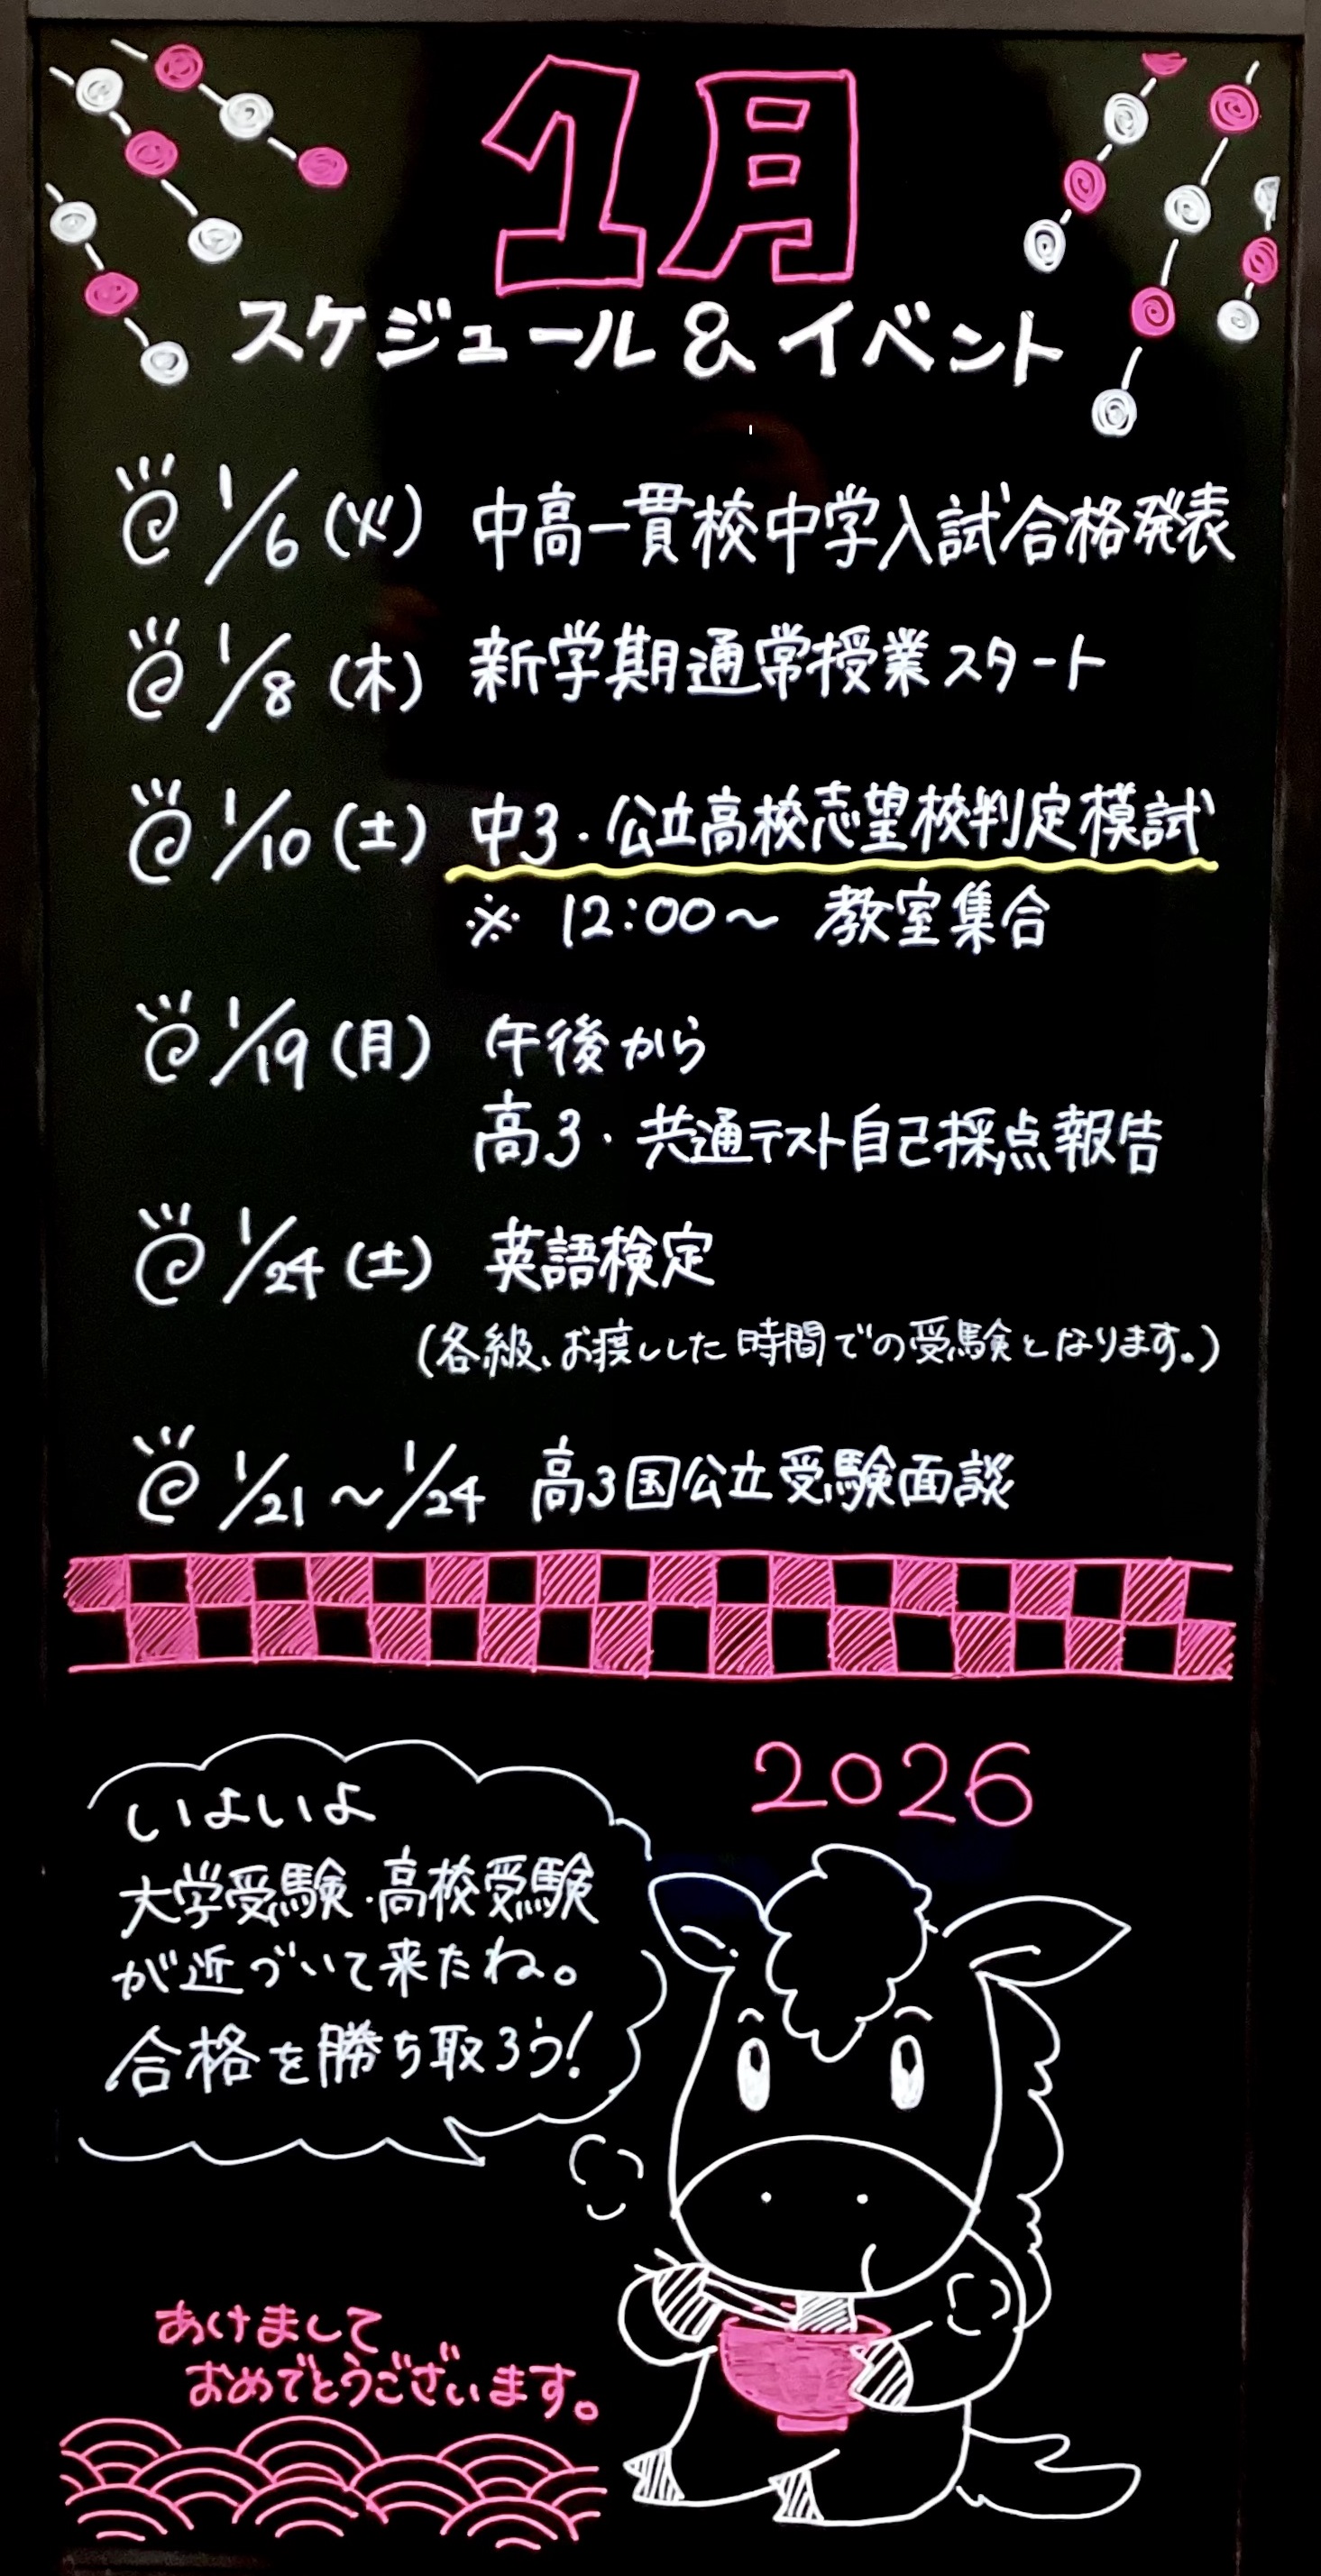 1月
スケジュール & イベント
1/6(火) 中高一貫校中学入試合格発表
1/8(木) 新学期通常授業スタート
1/10(土) 中3・公立高校志望校判定模試
※ 12:00〜 教室集合
1/19(月) 午後から
高3・共通テスト自己採点報告
1/24(土) 英語検定
(各級、お渡しした時間での受験となります。)
1/21〜1/24 高3国公立受験面談
2026
いよいよ
大学受験・高校受験
が近づいて来たね。
合格を勝ち取ろう!
あけまして
おめでとうございます。